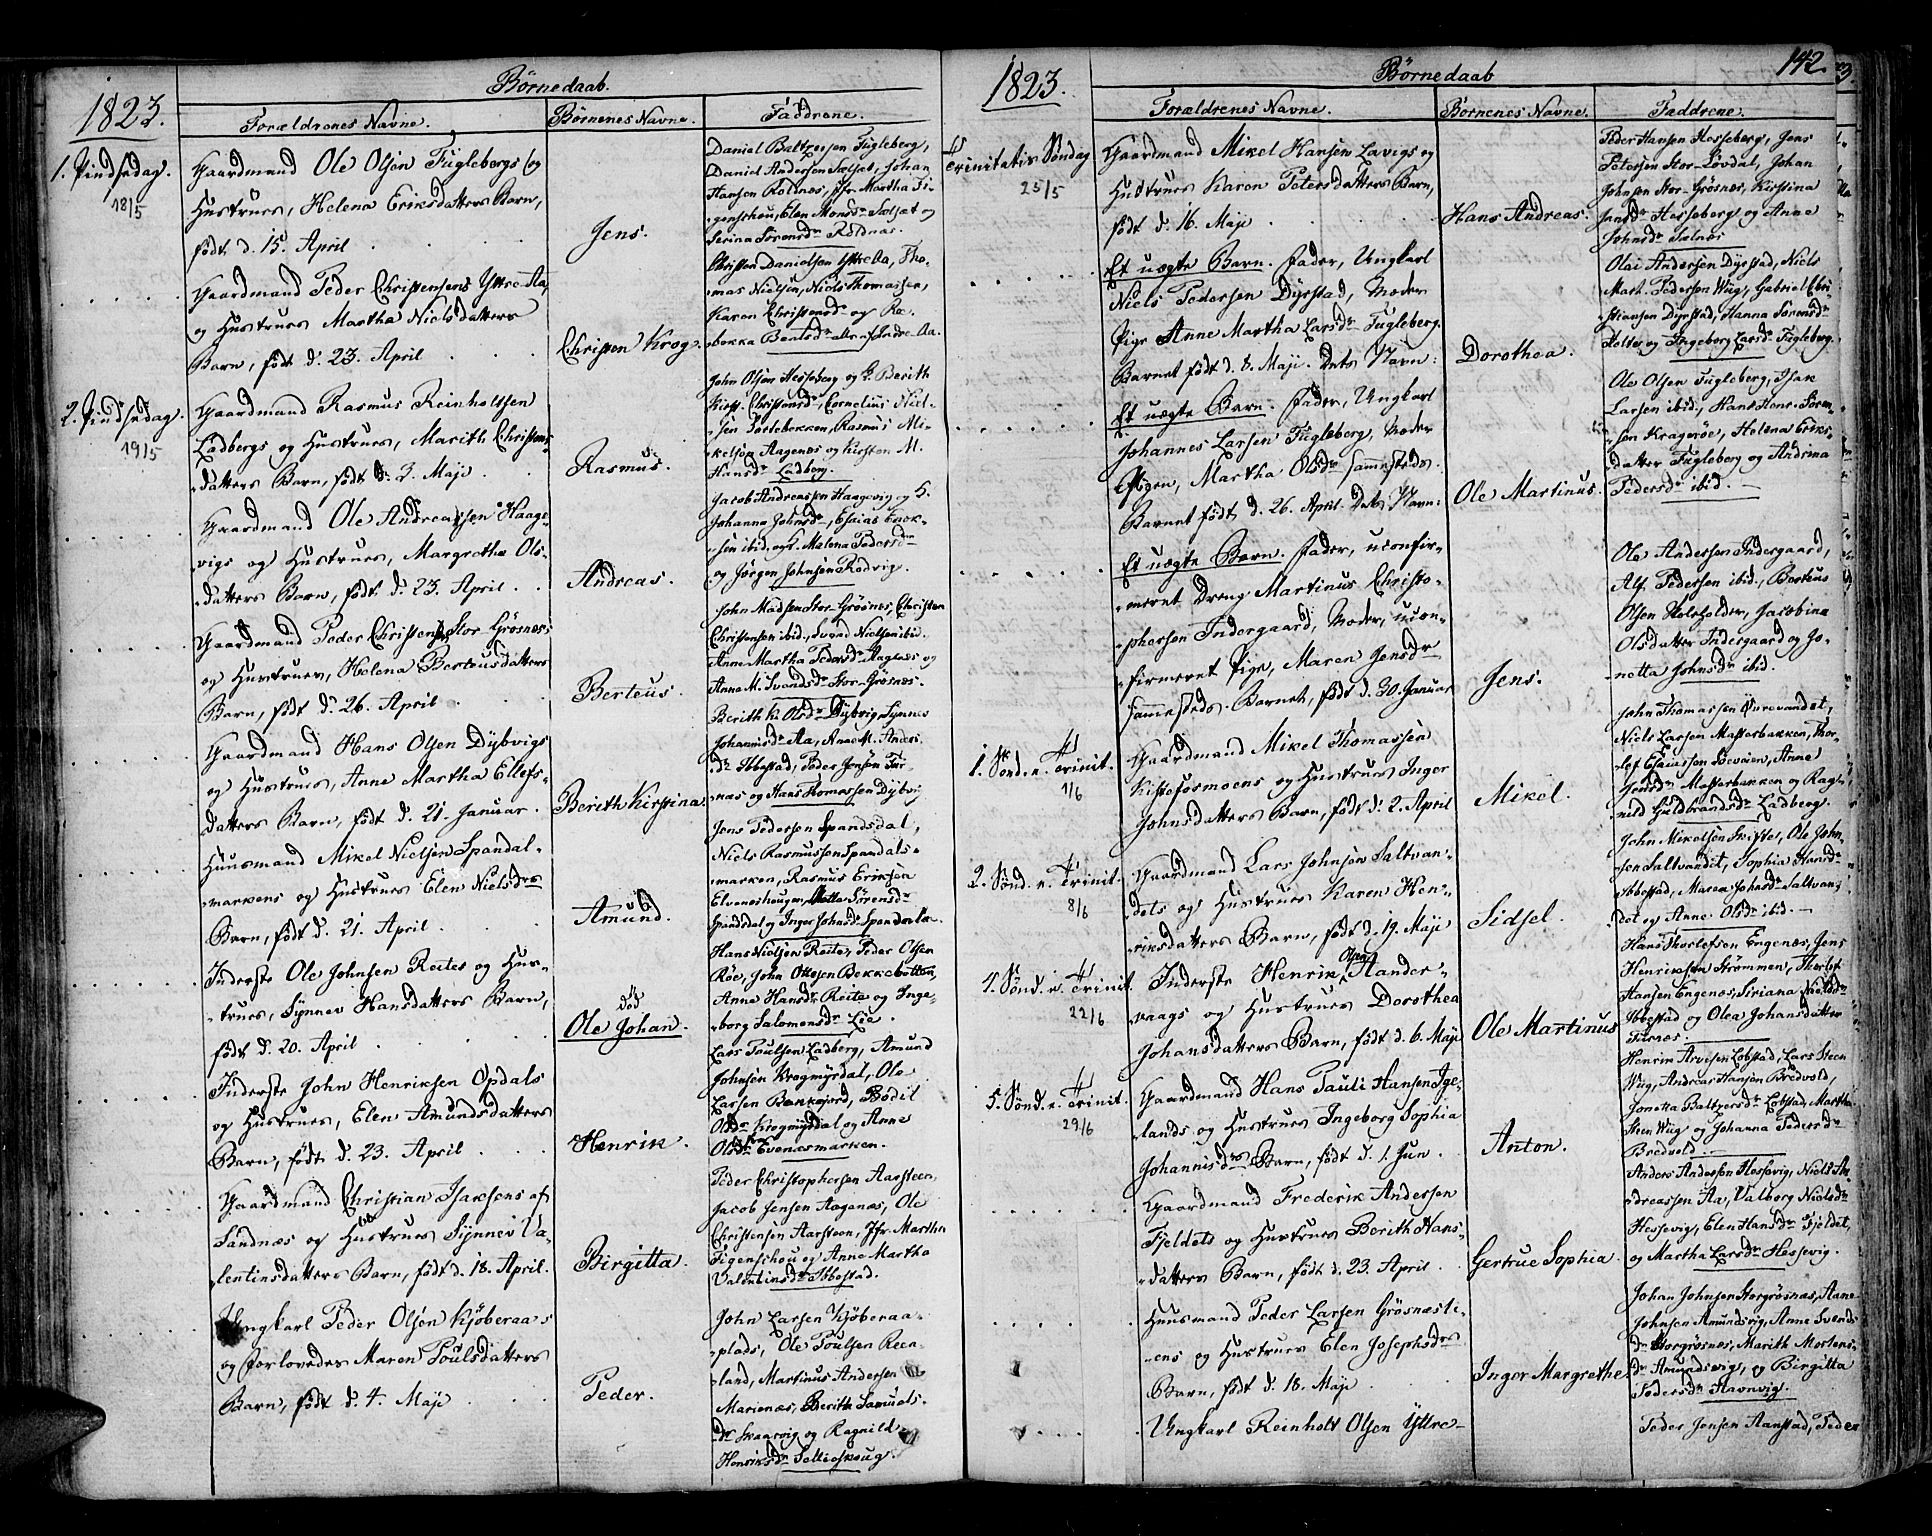 Børnedaab.
1823.
Forældrenes Navne.
Børnenes Navne.
Faddrene.
1. Pindsedag.
18/5
Gaardmand Ole Olsen Fuglebergs og
Hustrues, Helena Eriksdatters Barn,
født d. 15. April
Jens.
Daniel Beltzersen Fugleberg,
Daniel Andersen Sælsæt, Johan
Hansen Rolnæs, Jfr. Martha Fi-
genschou, Elen Monsdr. Sælsæt og
Serina Sørensdr. Rolnæs.
Gaardmand Peder Christensens Yttre-Aa,
og Hustrues Martha Nielsdatters
Barn, født d. 23. April
Christen Krog.
Christen Danielsen Yttre Aa, Tho-
mas Nielsen, Niels Thomassen,
Karen Christensdr. og Re-
bekka Bentsdr. Indre Aa.
2. Pindsedag.
19/5
Gaardmand Rasmus Reinholtsen
Ladbergs og Hustrues, Marith Christens-
datters Barn, født d. 3. Maji
Rasmus.
John Olsen Hesseberg og H. Berith
Kirst. Christensdr., Cornelius Niel-
sen Sortebekken, Rasmus Mi-
kelsen Aagenæs og Kirsten M.
Hansdr. Ladberg.
Gaardmand Ole Andreassen Haage-
vigs og Hustrues, Margrethe Ols-
datters Barn, født d. 23. April
Andreas.
Jacob Andreassen Haagevig og H.
Johanna Johnsdr., Esaias Enok-
sen ibid. og H. Malena Pedersdr.
og Jørgen Johnsen Rødvig.
Gaardmand Peder Christens. Stor Grøsnæs
og Hustrues, Helena Berteusdatters
Barn, født d. 26. April
Berteus.
John Madsen Stor-Grøsnæs, Christen
Christensen ibid., Svend Nielsen ibid.
Anne Martha Pedersdr. Aagnæs og
Anne M. Svendsdr. Stor-Grøsnæs.
Gaardmand Hans Olsen Dybvigs
og Hustrues, Anne Martha Ellefs-
datters Barn, født d. 21. Januar
Berith Kirstina
Berith K. Olsdr. Dybvig, Synnev
Johannisdr. Aa, Anne M. Anders
dr. Ibbestad, Peder Jensen Fur-
næs og Hans Thomassen Dybvig
Huusmand Mikel Nielsen Spandal-
markens og Hustrues Elen Nielsdrs
Barn, født d. 21. April
Amund.
Jens Pedersen Spandsdal,
Niels Rasmussen Spandals-
marken, Rasmus Eriksen
Elveneshougen, Mette Sørensdr.
Spandsdal og Inger Johnsdr.
Inderste Ole Johnsen Reites og Hus-
trues, Synnev Hansdatters Barn,
født d. 20. April
død
Ole Johan.
Hans Nielsen Reite, Peder Olsen
Røe, John Ottesen Bekkebotten,
Anne Hansdr. Reite og Inge-
borg Salomonsdr. Lie.
Inderste John Henriksen Opdals
og Hustrues, Elen Amundsdatters
Barn, født d. 23. April
Henrik.
Lars Poulsen Ladberg, Amund
Johnsen Krogmyrdal, Ole
Larsen Renkefjord, Bodil
Olsdr. Krogmyrdal og Anne
Olsdr. Evenæsmarken.
Gaardmand Christian Isaksens af
Sandnæs og Hustrues Synnev Va-
lentinsdatters Barn, født d. 18. April.
Birgitta.
Peder Christophersen Aarsteen,
Jacob Jensen Aagenæs, Ole
Christensen Aarsteen, Jfr. Martha
Figenschou og Anne Martha
Valentinsdr. Ibbestad.
Ungkarl Peder Olsen Kjøberaas
og Forlovedes Maren Poulsdatters
Barn, født d. 4. Maji
Peder.
John Larsen Kjøberaa-
plads, Ole Poulsen Reen-
land, Martinus Andersen
Marienæs, Berith Samuels-
dr. Skaarvig og Ragnild
Henriksdr. Sellieskoug.
1823.
Børnedaab
142.
Forældrenes Navne.
Børnenes Navne.
Faddrene.
Trinitatis Søndag
25/5
Gaardmand Mikel Hansen Lavigs og
Hustrues Karen Petersdatters Barn,
født d. 16. Maji
Hans Andreas.
Peder Hansen Hesseberg, Jens
Petersen Stor-Løvdal, Johan
Johnsen Stor-Grøsnæs, Kirstina
Jensdr. Hesseberg og Anne
Johnsdr. Sælnæs
Et uægte Barn. Fader, Ungkarl
Niels Pedersen Dyrstad, Moder
Pige Anne Martha Larsdr. Fugleberg.
Barnet født d. 8. Maji. Dets Navn:
Dorothea.
Olai Andersen Dyrstad, Niels
Mart. Pedersen Wug, Gabriel Chri-
stiansen Dyrstad, Hanna Sørensdr.
og Ingeborg Larsdr. Fugleberg.
Et uægte Barn. Fader, Ungkarl
Johannes Larsen Fugleberg, Moder
Pigen, Martha Olsdr. sammesteds.
Barnet født d. 26. April. Dets Navn:
Ole Martinus.
Ole Olsen Fugleberg, Isak
Larsen ibid., Hans Henr. Søren-
sen Kragerøe, Helena Eriks-
datter Fugleberg og Andrina
Pedersdr. ibid.
Et uægte Barn. Fader, uconfir-
meret Dreng Martinus Christo-
phersen Indergaard, Moder, ucon-
firmeret Pige, Maren Jensdr.
sammesteds. Barnet, født d. 30. Januar
Jens.
Ole Andersen Indergaard,
Alf. Pedersen ibid., Berteus
Olsen Holefolder, Jacobina
Olsdatter Indergaard og Jo-
netta Johnsdr. ibid.
1. Sønd. e. Trinit.
1/6
Gaardmand Mikel Thomassen
Kistefosmoens og Hustrues Inger
Johnsdatters Barn, født d. 2. April
Mikel.
John Thomassen Øvrevandet,
Niels Larsen Masterbakken, Thor-
lef Esaiassen Løevaien, Anne
Jensdr. Masterbakken og Rag-
nild Guldbrandsdr. Ladberg.
2. Sønd. e. Trinit.
8/6
Gaardmand Lars Johnsen Saltvan-
dets og Hustrues Karen Hen-
riksdatters Barn, født d. 19. Maji
Sidsel.
John Mikelsen Skifte, Ole John-
sen Saltvandet, Sophia Hansdr.
Ibbestad, Maren Johnsdr. Saltvan-
det og Anne Olsdr. ibid.
4. Sønd. e. Trinit.
22/6
Inderste Henrik Olsen Hander-
vaags og Hustrues Dorothea
Johansdatters Barn, født d. 6. Maji
Ole Martinus
Hans Thorlefsen Engenæs, Jens
Henriksen Strømmen, Thorlef
Hansen Engenæs, Siriana Nielsdr.
Ibbestad og Olea Johansdatter
Furnæs.
5. Sønd. e. Trinit.
29/6
Gaardmand Hans Pauli Hansen Ige-
lands og Hustrues Ingeborg Sophia
Johannisdrs Barn, født d. 1. Jun.
Anton.
Henrik Arvesen Lobstad, Lars Steen
Wug, Andreas Hansen Bredvold,
Jonetta Baltzersdr. Lobstad, Martha
Steen Wug og Johanna Pedersdr.
Bredvold.
Gaardmand Frederik Andersen
Fjeldets og Hustrues Berith Hans-
datters Barn, født d. 23. April
Gertrue Sophia
Anders Andersen Hessevig, Niels An-
dreassen Aa, Valborg Nielsdr.
Hessevig, Elen Hansdr. Fjeldet,
og Martha Larsdr. Hessevig.
Huusmand Peder Larsen Grøsnæsli-
ens og Hustrues Elen Josephsdrs
Barn, født d. 18. Maji
Inger Margrethe
Johan Johnsen Storgrøsnæs, Aane
Johnsen Amundsvig, Anne Svends-
dr. Storgrøsnæs, Marith Mortens-
dr. Amundsvig, og Birgitta
Pedersdr. Havnvig.
Ungkarl Reinholt Olsen Yttre-
Peder Jensen Aanstad, Peder